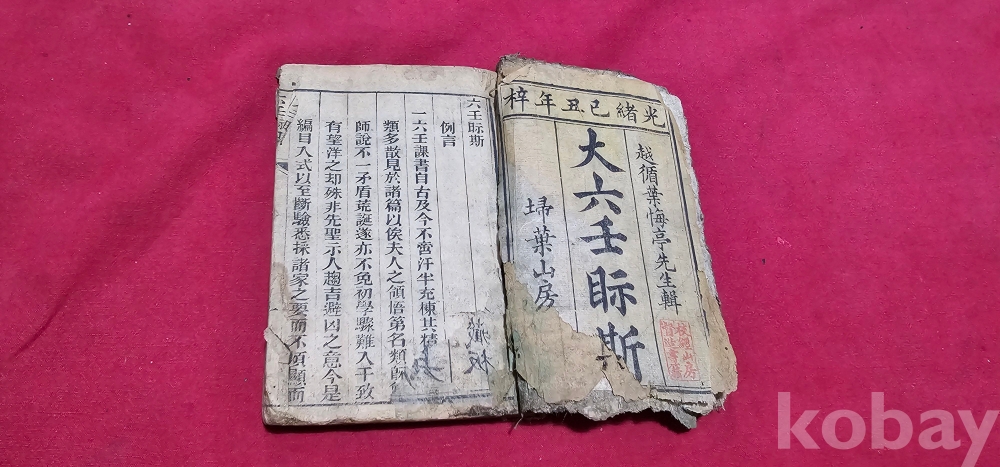 光緒己丑年梓
越循葉悔亭先生輯
大六壬眎斯
埽葉山房
藏板
六壬眎斯
例言
一六壬課書自古及今不啻汗牛充棟其精
類多散見於諸篇以俟夫人之領悟第名類師
師說不一矛盾荒誕遂亦不免初學驟難入手致
有望洋之却殊非先聖示人趨吉避凶之意今是
編目入式以至斷驗悉採諸家之要而不煩顯而
kobay